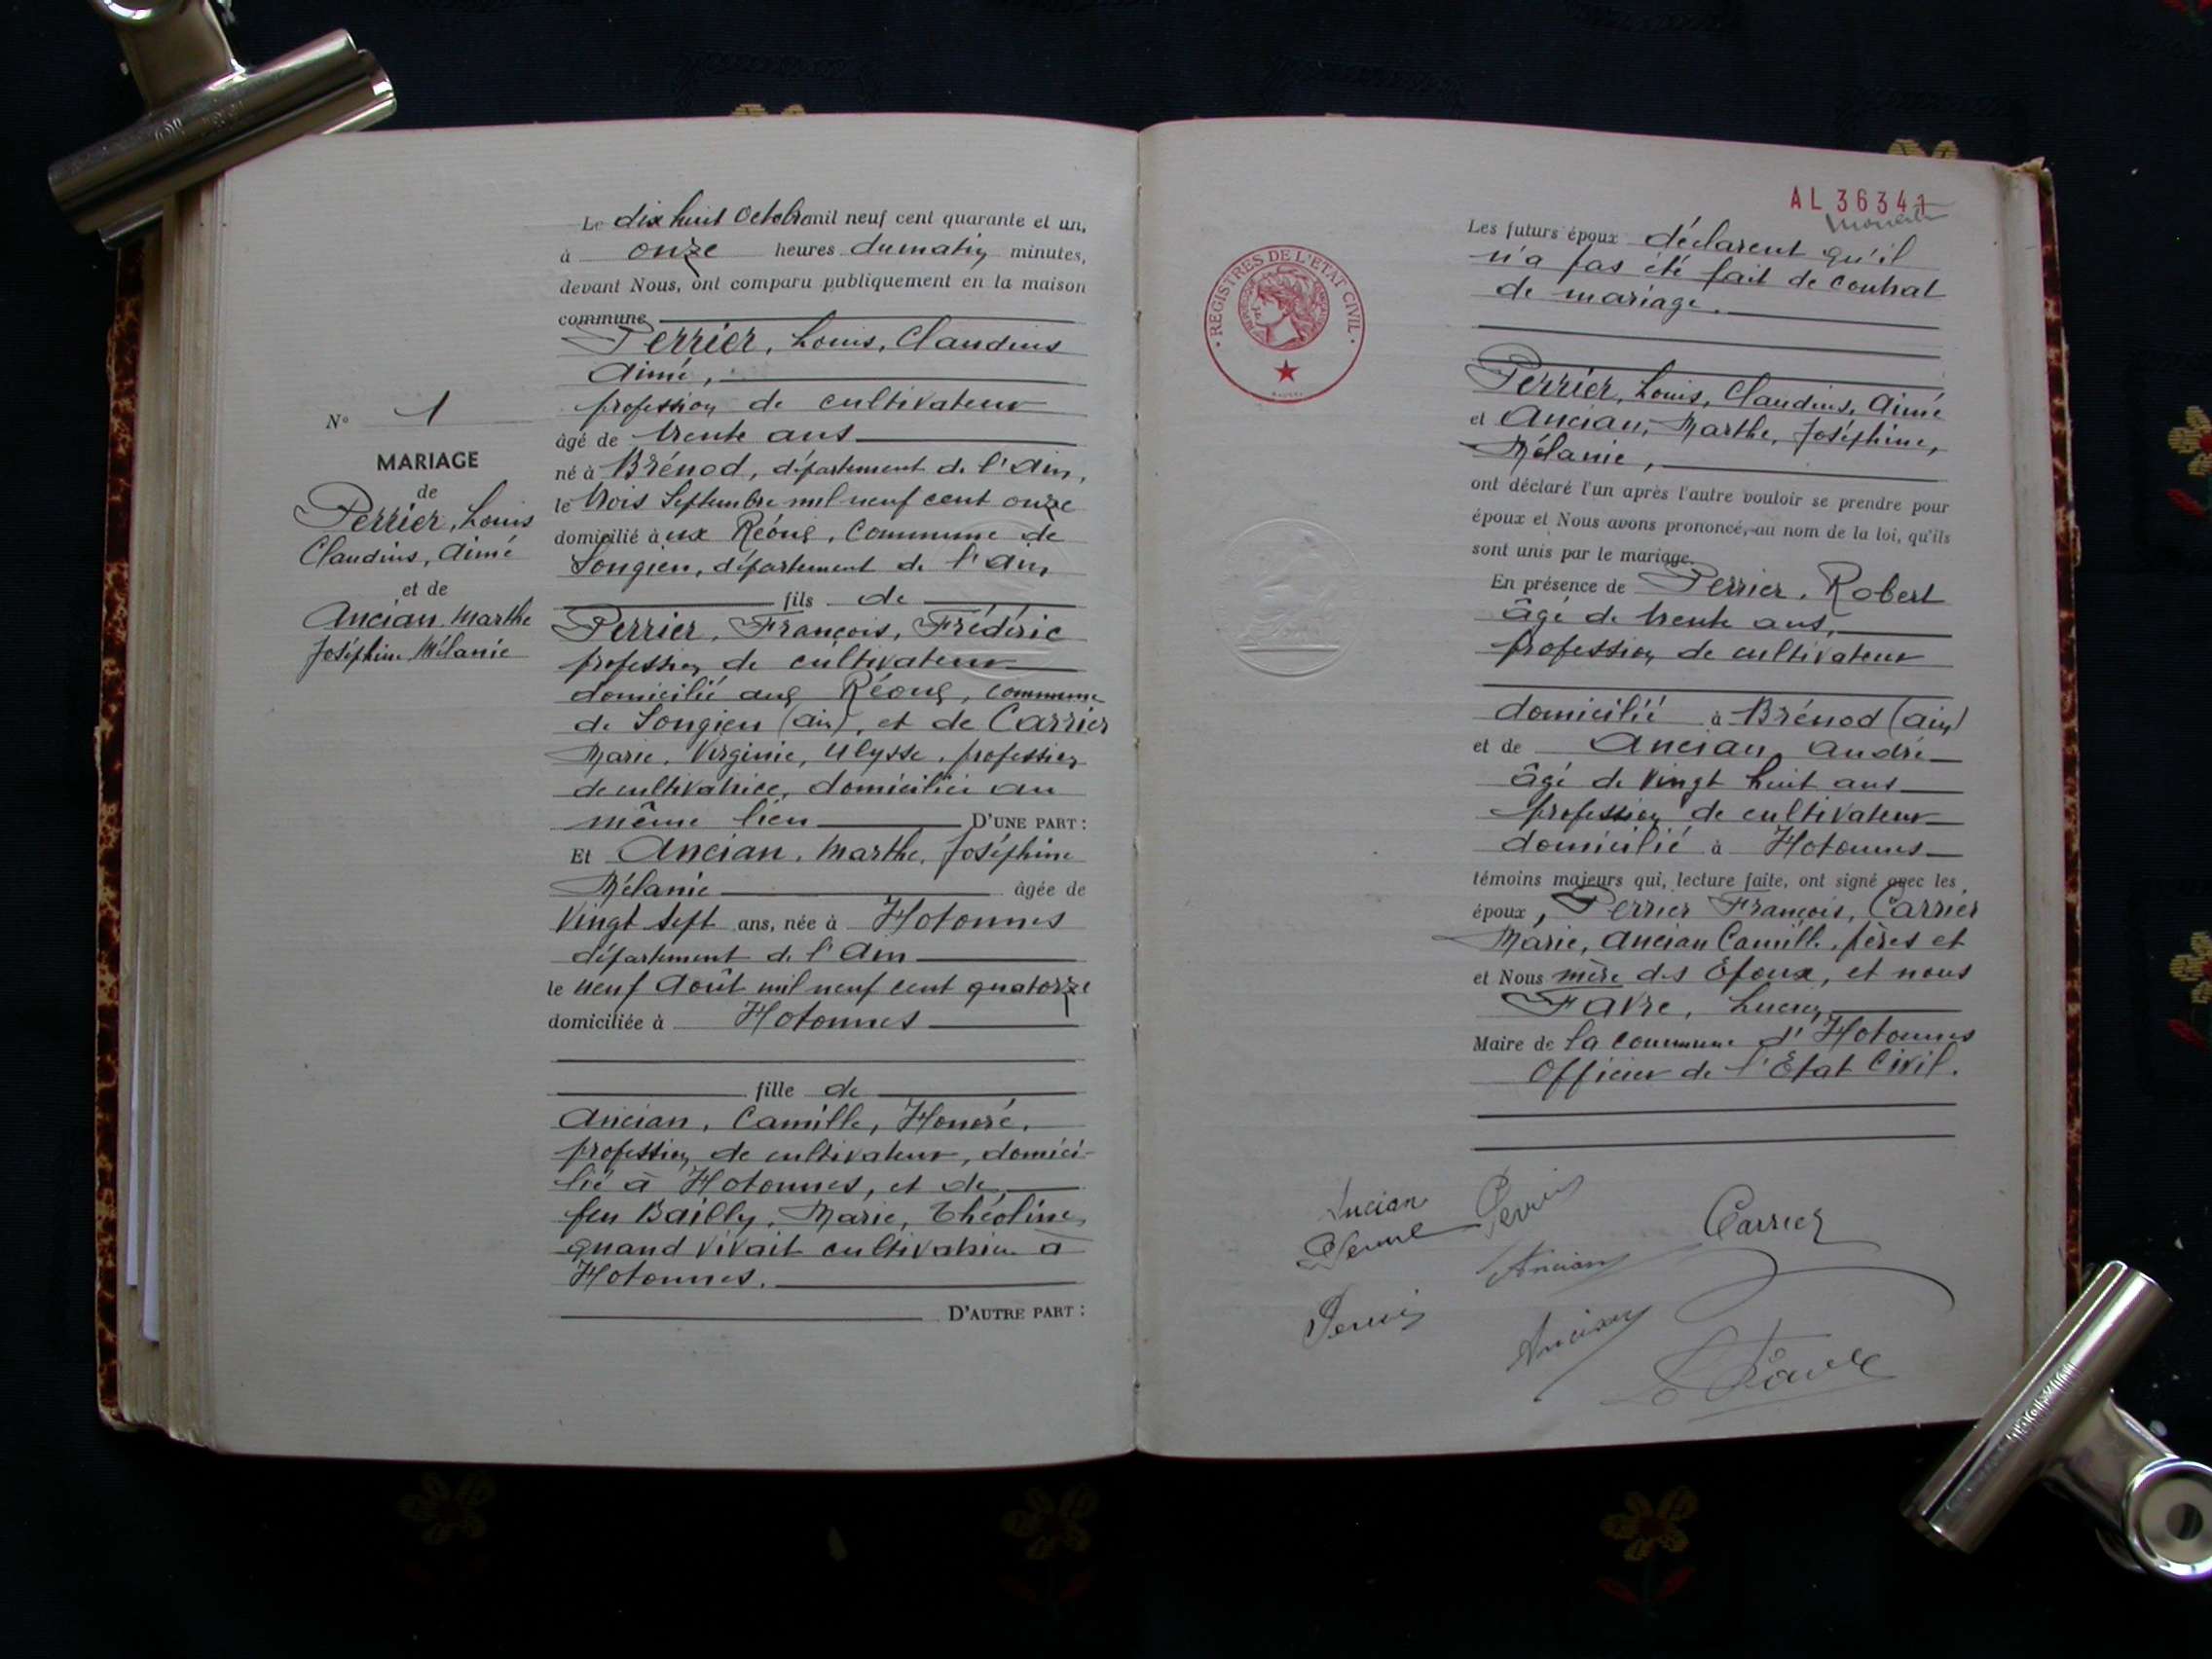 N° 1
MARIAGE
de
Perrier, Louis
Claudius, Aimé
et de
Ancian Marthe
Joséphine Mélanie
Le dix huit Octobre mil neuf cent quarante et un,
à onze heures du matin minutes,
devant Nous, ont comparu publiquement en la maison
commune
Perrier, Louis, Claudius
Aimé,
profession de cultivateur
âgé de trente ans
né à Brénod, département de l'Ain,
le trois Septembre mil neuf cent onze
domicilié à ux Réoux, Commune de
Songieu, département de l'Ain
fils de
Perrier, François, Frédéric
profession de cultivateur
domicilié aux Réoux, commune
de Songieu (Ain), et de Carrier
Marie, Virginie, Ulysse, profession
de cultivatrice, domiciliée au
même lieu D'UNE PART :
Et Ancian, Marthe, Joséphine
Mélanie âgée de
vingt sept ans, née à Hotonnes
département de l'Ain
le neuf Août mil neuf cent quatorze
domiciliée à Hotonnes
fille de
Ancian, Camille, Honoré,
profession de cultivateur, domici-
lié à Hotonnes, et de
feu Bailly, Marie, Théoline,
quand vivait cultivatrice à
Hotonnes.
D'AUTRE PART :
AL 36341
REGISTRES DE L'ETAT CIVIL
Les futurs époux déclarent qu'il
n'a pas été fait de contrat
de mariage.
Perrier, Louis, Claudius, Aimé
et Ancian, Marthe, Joséphine,
Mélanie,
ont déclaré l'un après l'autre vouloir se prendre pour
époux et Nous avons prononcé, au nom de la loi, qu'ils
sont unis par le mariage.
En présence de Perrier, Robert
âgé de trente ans,
profession de cultivateur
domicilié à Brénod (Ain)
et de Ancian André
âgé de vingt huit ans
profession de cultivateur
domicilié à Hotonnes
témoins majeurs qui, lecture faite, ont signé avec les
époux, Perrier François, Carrier
Marie, Ancian Camille, pères et
et Nous mère des Epoux, et nous
Favre, Lucien
Maire de la commune d'Hotonnes
Officier de l'Etat Civil.
Ancian
Carrier
Ancian
Perrier
Ancian
L Favre